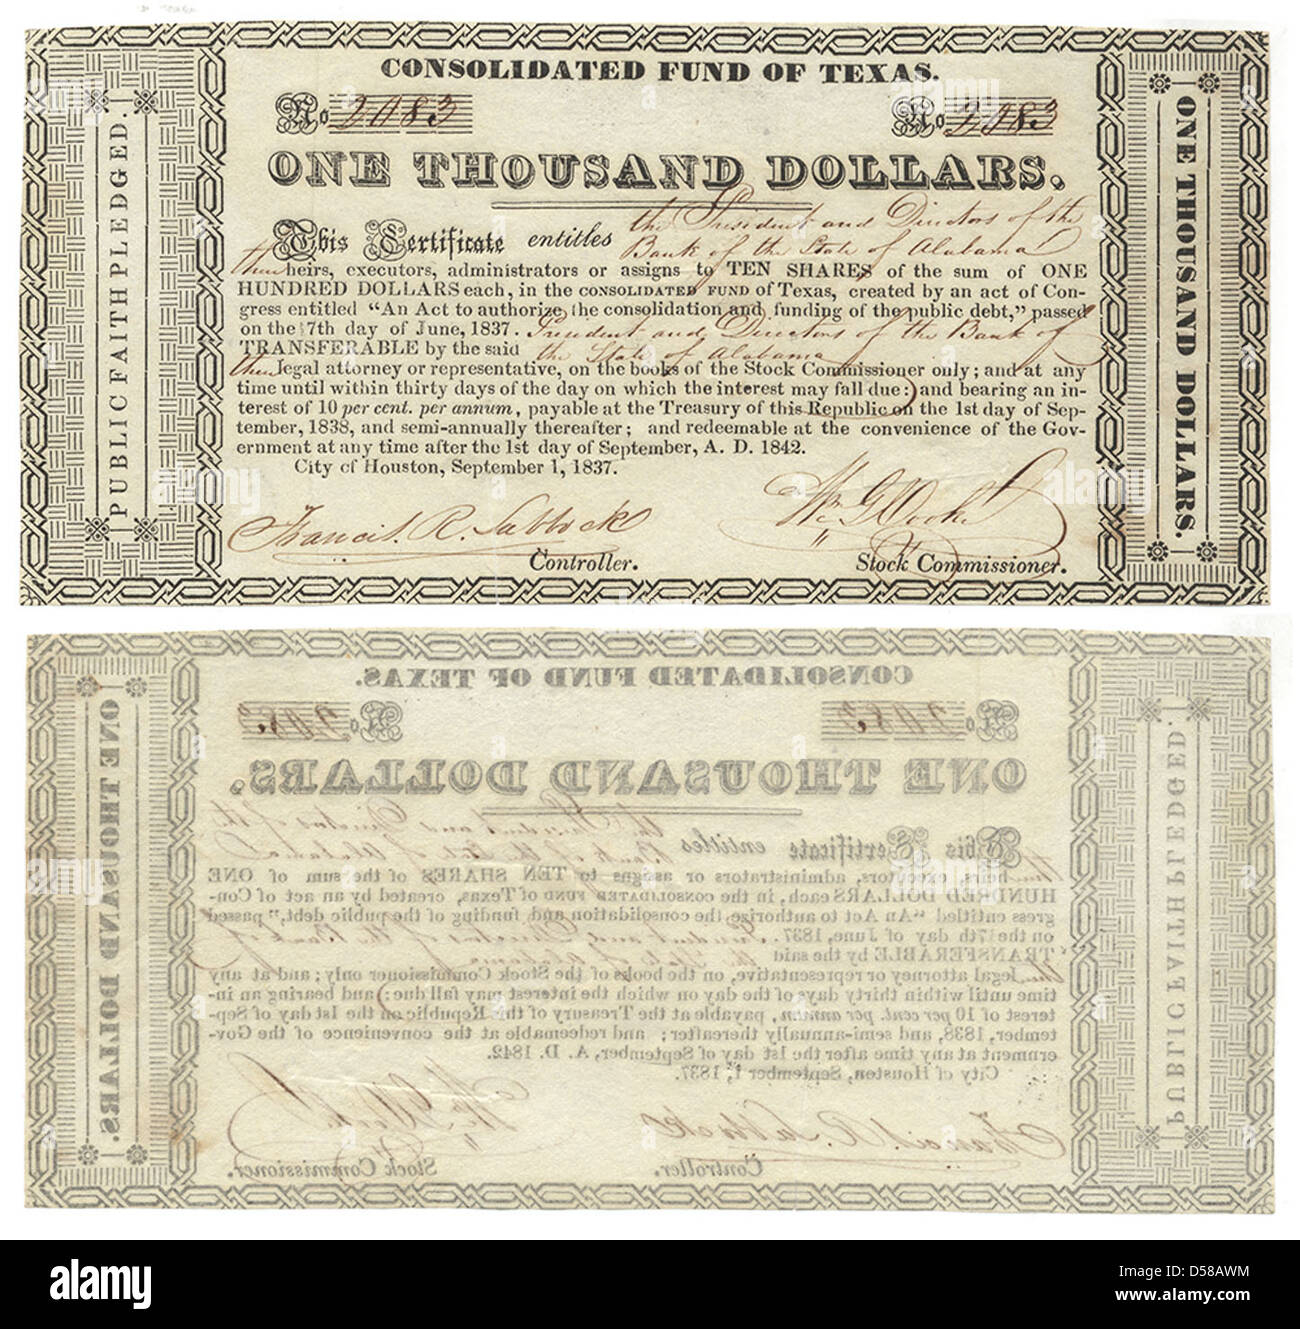 CONSOLIDATED FUND OF TEXAS.
No 2083 No 2083
ONE THOUSAND DOLLARS.
This Certificate entitles the President and Directors of the
Bank of the State of Alabama
their heirs, executors, administrators or assigns to TEN SHARES of the sum of ONE
HUNDRED DOLLARS each, in the CONSOLIDATED FUND of Texas, created by an act of Con-
gress entitled "An Act to authorize the consolidation and funding of the public debt," passed
on the 7th day of June, 1837. President and Directors of the Bank of
TRANSFERABLE by the said the State of Alabama
their legal attorney or representative, on the books of the Stock Commissioner only; and at any
time until within thirty days of the day on which the interest may fall due: and bearing an in-
terest of 10 per cent. per annum, payable at the Treasury of this Republic on the 1st day of Sep-
tember, 1838, and semi-annually thereafter; and redeemable at the convenience of the Gov-
ernment at any time after the 1st day of September, A. D. 1842.
City of Houston, September 1, 1837.
Francis R. Lubbock
Wm G Cooke
Controller.
Stock Commissioner.
PUBLIC FAITH PLEDGED.
ONE THOUSAND DOLLARS.
CONSOLIDATED FUND OF TEXAS.
No 2083 No 2083
ONE THOUSAND DOLLARS.
This Certificate entitles the President and Directors of the
Bank of the State of Alabama
their heirs, executors, administrators or assigns to TEN SHARES of the sum of ONE
HUNDRED DOLLARS each, in the CONSOLIDATED FUND of Texas, created by an act of Con-
gress entitled "An Act to authorize the consolidation and funding of the public debt," passed
on the 7th day of June, 1837. President and Directors of the Bank of
TRANSFERABLE by the said the State of Alabama
their legal attorney or representative, on the books of the Stock Commissioner only; and at any
time until within thirty days of the day on which the interest may fall due: and bearing an in-
terest of 10 per cent. per annum, payable at the Treasury of this Republic on the 1st day of Sep-
tember, 1838, and semi-annually thereafter; and redeemable at the convenience of the Gov-
ernment at any time after the 1st day of September, A. D. 1842.
City of Houston, September 1, 1837.
Francis R. Lubbock
Wm G Cooke
Controller.
Stock Commissioner.
PUBLIC FAITH PLEDGED.
ONE THOUSAND DOLLARS.
alamy
Image ID: D58AWM
www.alamy.com